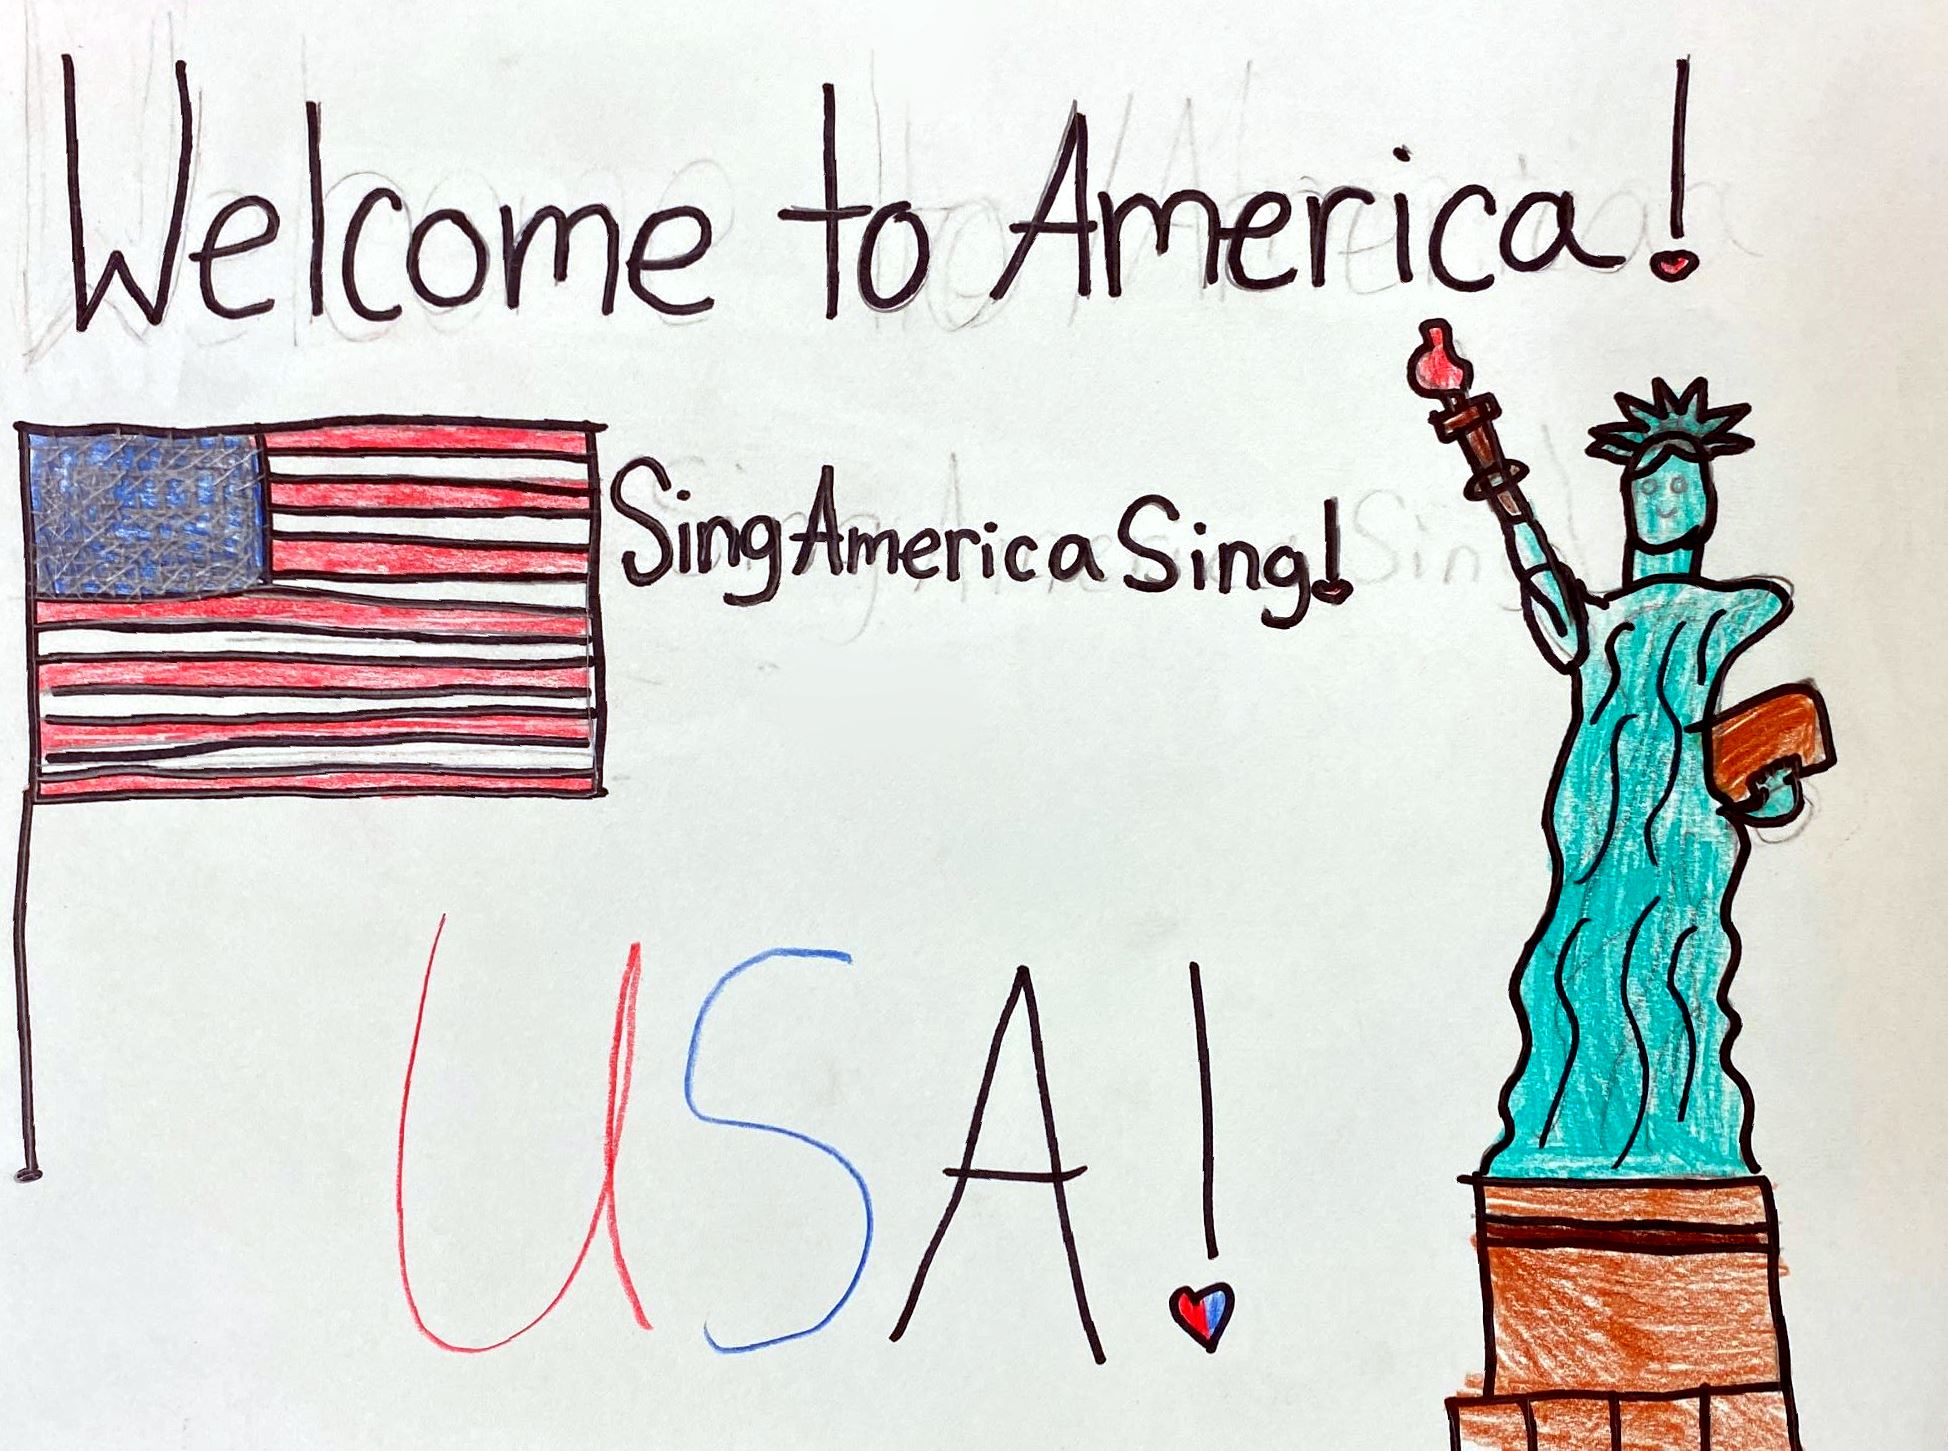 Welcome to America!
Sing America Sing!
USA!